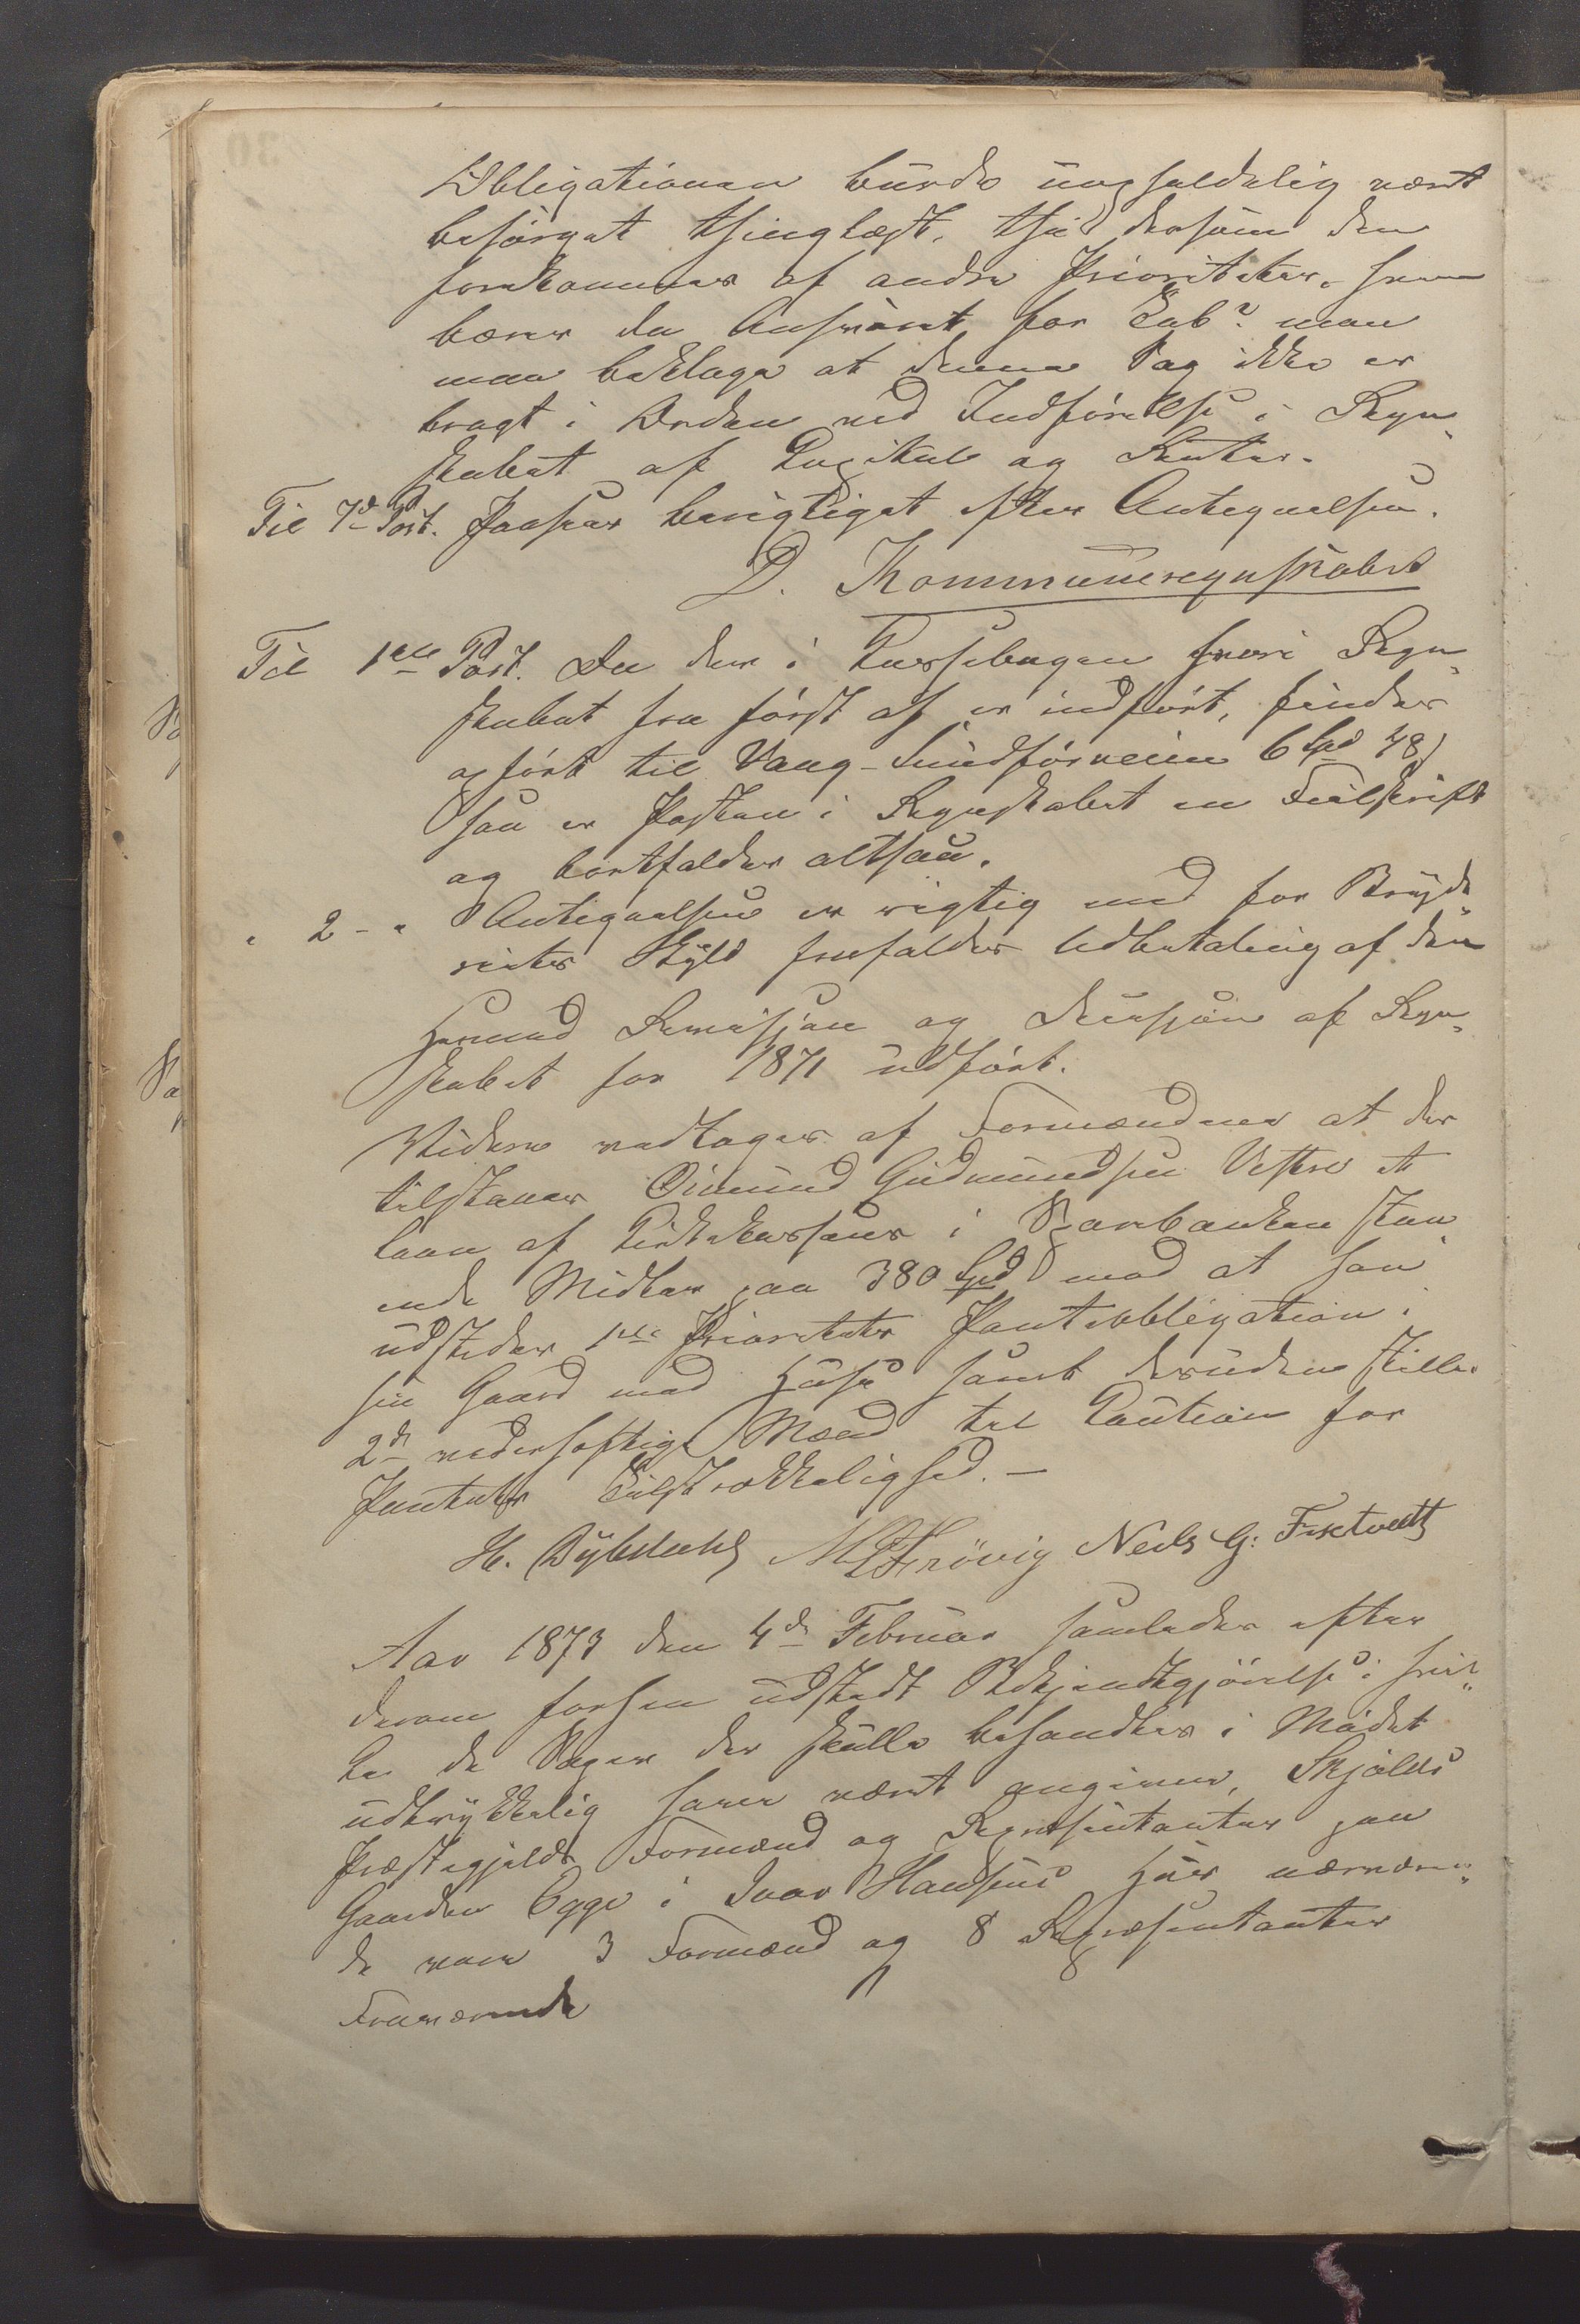 Obligationen burde uopholdelig vært
besørget thinglæst, thi dersom den
forekommes af andre Prioriteter, hvem
bærer da Ansvaret for Tab? man
maa beklage at denne Sag ikke er
bragt i Orden ved Indførelse i Regn„
skabet af Kapital og Renter.
Til 7de Post. Passer berigtiget efter Antegnelsen.
D. Kommuneregnskabet
Til 1ste Post. Da der i Kassebogen hvori Regn„
skabet fra først af er indført, findes
opført til Vang-Sundførveien 6 Spd 48 ſ
saa er Posten i Regnskabet en Feilskrift
og bortfalder altsaa.
" 2 - " Antegnelsen er rigtig med for
Skyld frafalder Udbetaling af den
Hermed Revisjon og Desisjon af Regn„
skabet for 1871 udført.
Videre vedtoges af Formændene at der
tilstaaes Eimund Gudmundsen Vestre et
Laan af Kirkekassens i Sparebanken staa
ende Midler paa 380 Spd mod at han
udsteder 1ste Prioritets Pantobligation i
sin Gaard med Huse samt desuden stiller
2de vederhæftige Mænd til Caution for
Pantets Tilstrækkelighed. –
H. Dybsdahl M Frövig Neils G: Fisetvedt
Aar 1873 den 4de Februar samledes efter
derom forhen udstedt Bekjendtgjørelse i hvil„
ke de Sager der skulle behandles i Mødet
udtrykkelig have vært angivne, Skjolds
Præstegjelds Formænd og Repræsentanter paa
Gaarden Egge i Ivar Hansens Hus nærværen„
de vare 3 Formænd og 8 Repræsentanter
Fraværende